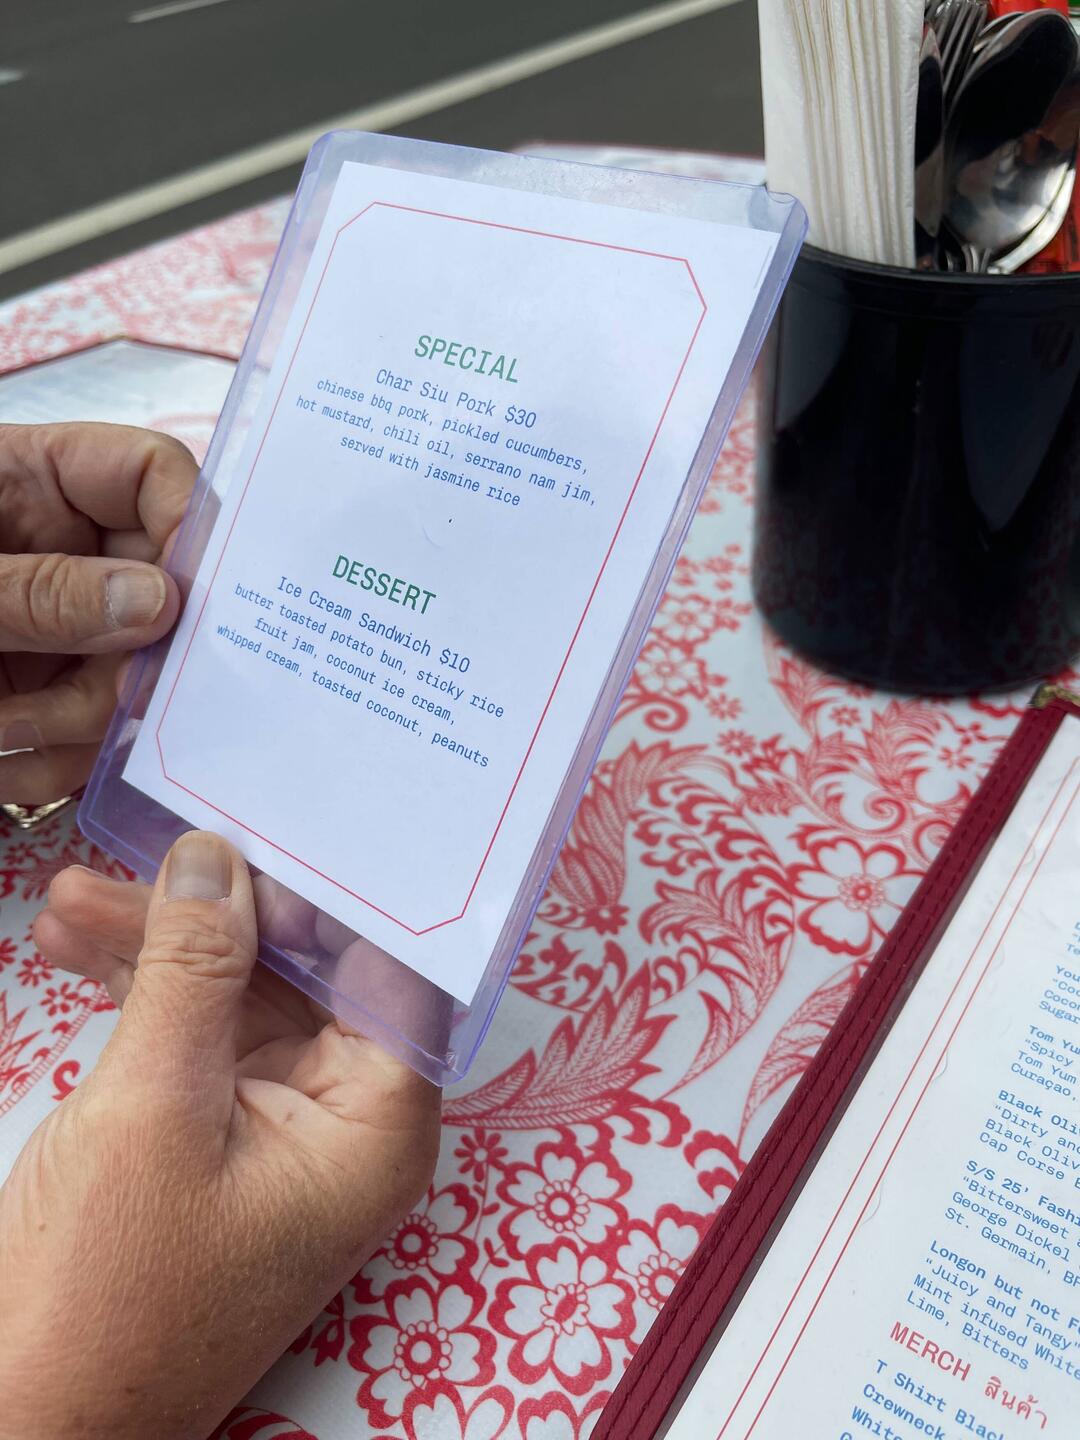 SPECIAL
Char Siu Pork $30
chinese bbq pork, pickled cucumbers,
hot mustard, chili oil, serrano nam jim,
served with jasmine rice
DESSERT
Ice Cream Sandwich $10
butter toasted potato bun, sticky rice
fruit jam, coconut ice cream,
whipped cream, toasted coconut, peanuts
Tom Yu
"Spicy
Tom Yum
Curaçao,
Black Oli
"Dirty an
Black Oliv
Cap Corse
S/S 25' Fashi
"Bittersweet
George Dickel
St. Germain,
Longon but not F
"Juicy and Tangy"
Mint infused White
Lime, Bitters
MERCH สินค้า
T Shirt Blac
Crewneck
White